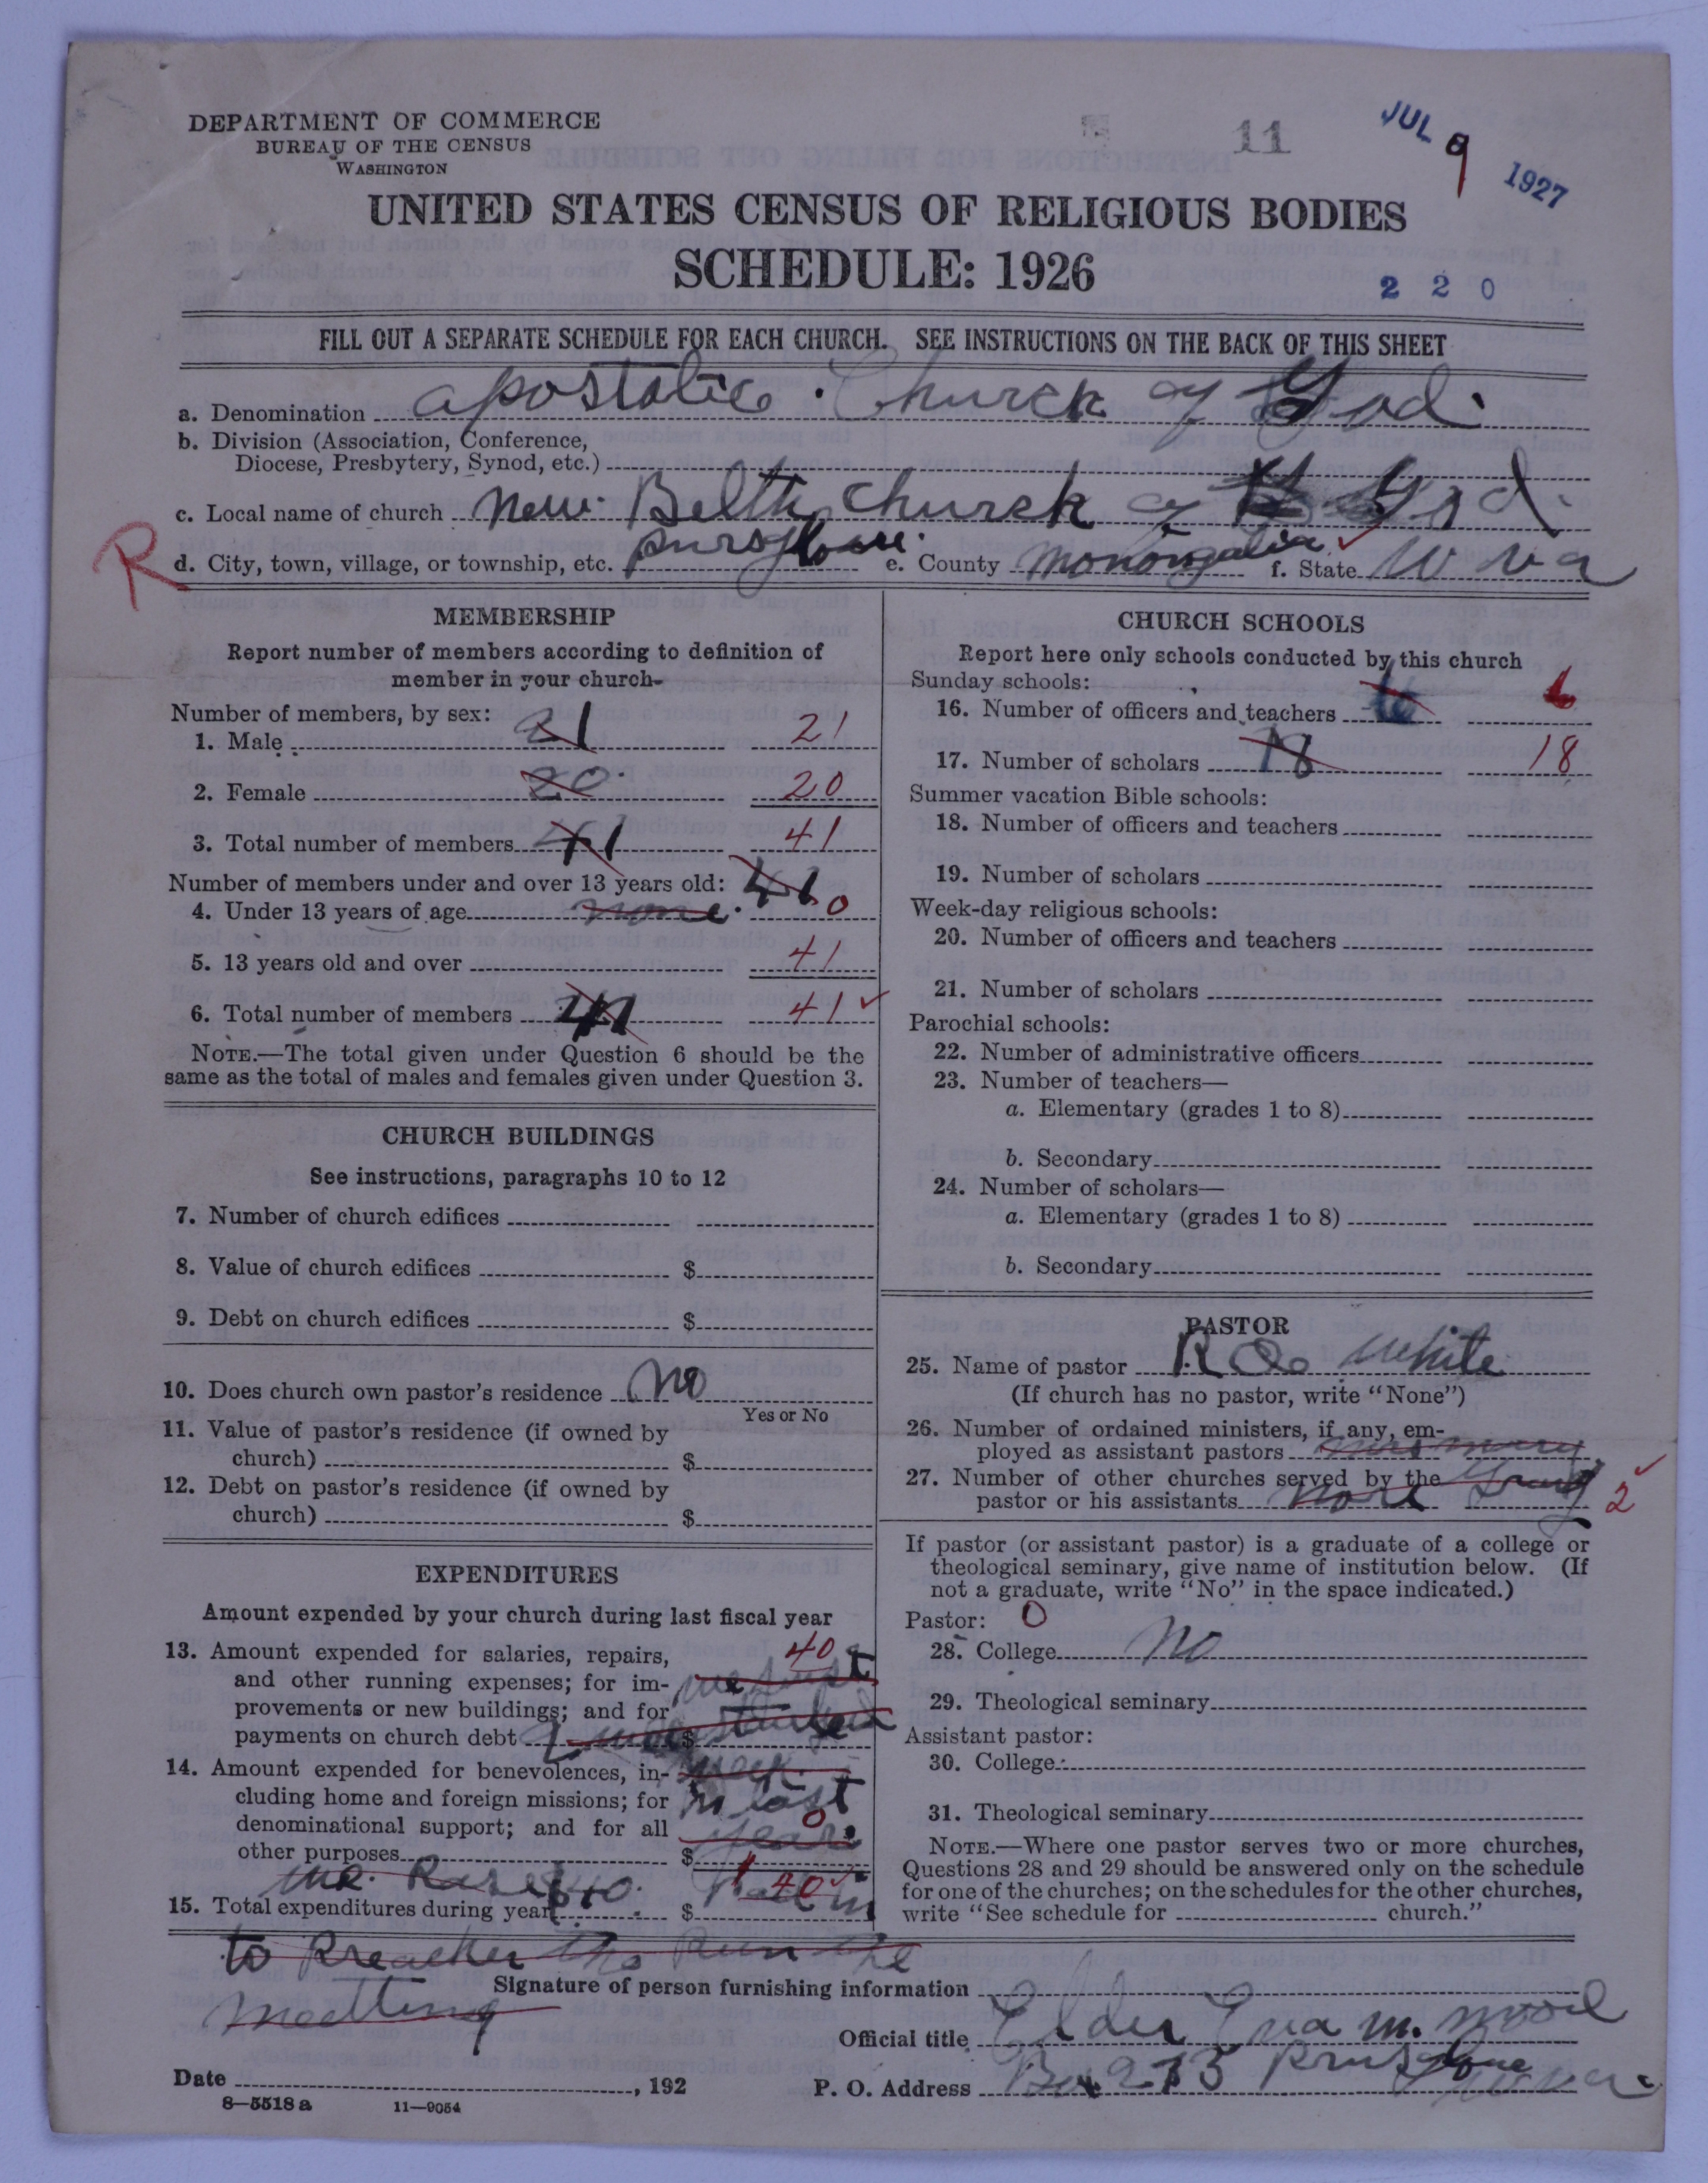 DEPARTMENT OF COMMERCE
BUREAU OF THE CENSUS
WASHINGTON
11
JUL 9 1927
UNITED STATES CENSUS OF RELIGIOUS BODIES
SCHEDULE: 1926
2 2 0
FILL OUT A SEPARATE SCHEDULE FOR EACH CHURCH. SEE INSTRUCTIONS ON THE BACK OF THIS SHEET
a. Denomination apostolic Church of God.
b. Division (Association, Conference,
Diocese, Presbytery, Synod, etc.)
c. Local name of church new Belth church of God.
R
d. City, town, village, or township, etc. pursglove. e. County monongalia f. State W va
MEMBERSHIP
Report number of members according to definition of
member in your church-
Number of members, by sex:
1. Male 21 21
2. Female 20 20
3. Total number of members 41 41
Number of members under and over 13 years old: 41
4. Under 13 years of age none. 0
5. 13 years old and over 41
6. Total number of members 41 41 ✓
NOTE.—The total given under Question 6 should be the
same as the total of males and females given under Question 3.
CHURCH BUILDINGS
See instructions, paragraphs 10 to 12
7. Number of church edifices
8. Value of church edifices $
9. Debt on church edifices $
10. Does church own pastor's residence no
Yes or No
11. Value of pastor's residence (if owned by
church) $
12. Debt on pastor's residence (if owned by
church) $
EXPENDITURES
Amount expended by your church during last fiscal year
13. Amount expended for salaries, repairs, 40
and other running expenses; for im- we just
provements or new buildings; and for
payments on church debt $
14. Amount expended for benevolences, in-
cluding home and foreign missions; for in last
denominational support; and for all year. 0
other purposes $
15. Total expenditures during year $40. $ 40 ✓
to Preacher the Run the
meeting
CHURCH SCHOOLS
Report here only schools conducted by this church
Sunday schools:
16. Number of officers and teachers 6
17. Number of scholars 18 18
Summer vacation Bible schools:
18. Number of officers and teachers
19. Number of scholars
Week-day religious schools:
20. Number of officers and teachers
21. Number of scholars
Parochial schools:
22. Number of administrative officers
23. Number of teachers—
a. Elementary (grades 1 to 8)
b. Secondary
24. Number of scholars—
a. Elementary (grades 1 to 8)
b. Secondary
PASTOR
25. Name of pastor White
(If church has no pastor, write "None")
26. Number of ordained ministers, if any, em-
ployed as assistant pastors mrs mary
27. Number of other churches served by the
pastor or his assistants 2 ✓
If pastor (or assistant pastor) is a graduate of a college or
theological seminary, give name of institution below. (If
not a graduate, write "No" in the space indicated.)
Pastor: 0
28. College no
29. Theological seminary
Assistant pastor:
30. College
31. Theological seminary
NOTE.—Where one pastor serves two or more churches,
Questions 28 and 29 should be answered only on the schedule
for one of the churches; on the schedules for the other churches,
write "See schedule for church."
Signature of person furnishing information
Official title Elder Eva m.
Date , 192
P. O. Address Box 273 W va.
8—5518 a 11—9054